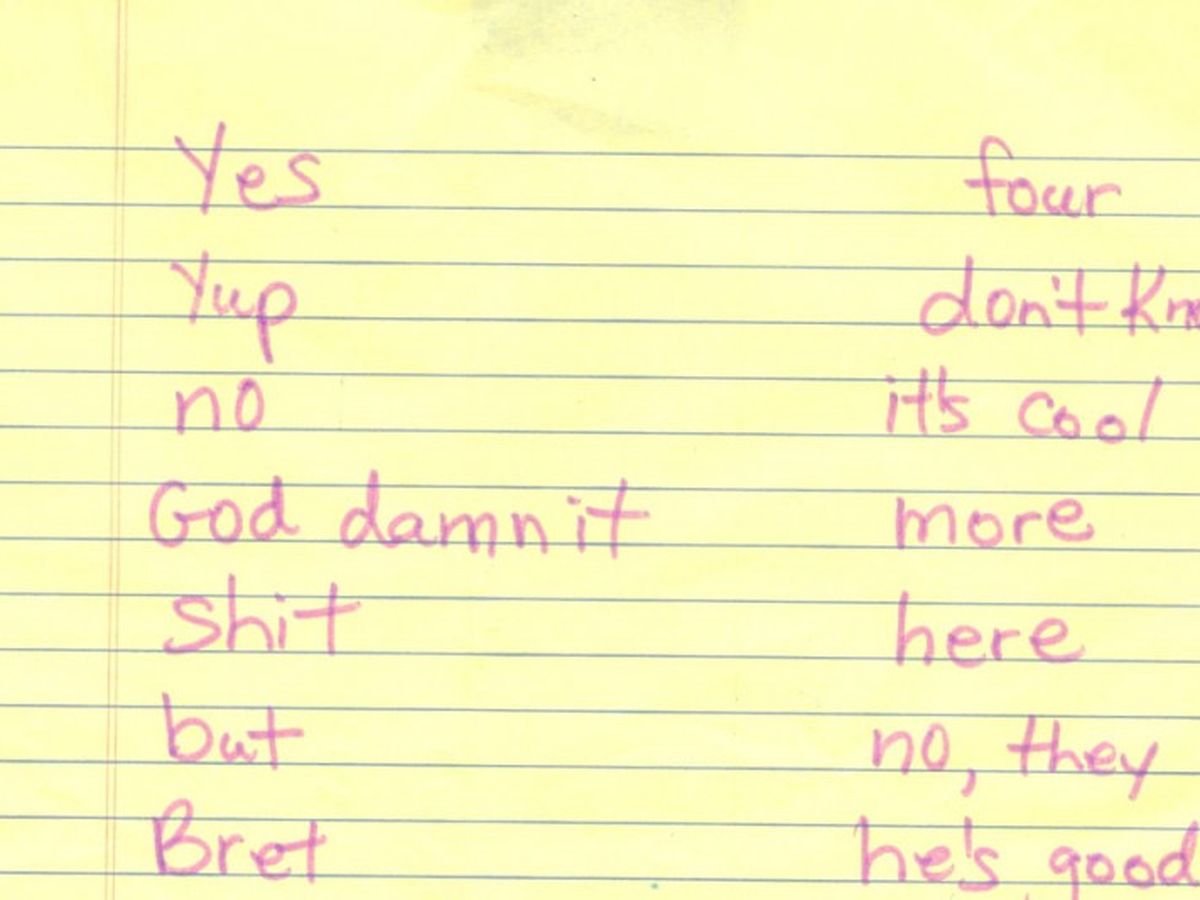 Yes four
Yup don't
no it's cool
God damn it more
shit here
but no, they
Bret he's good